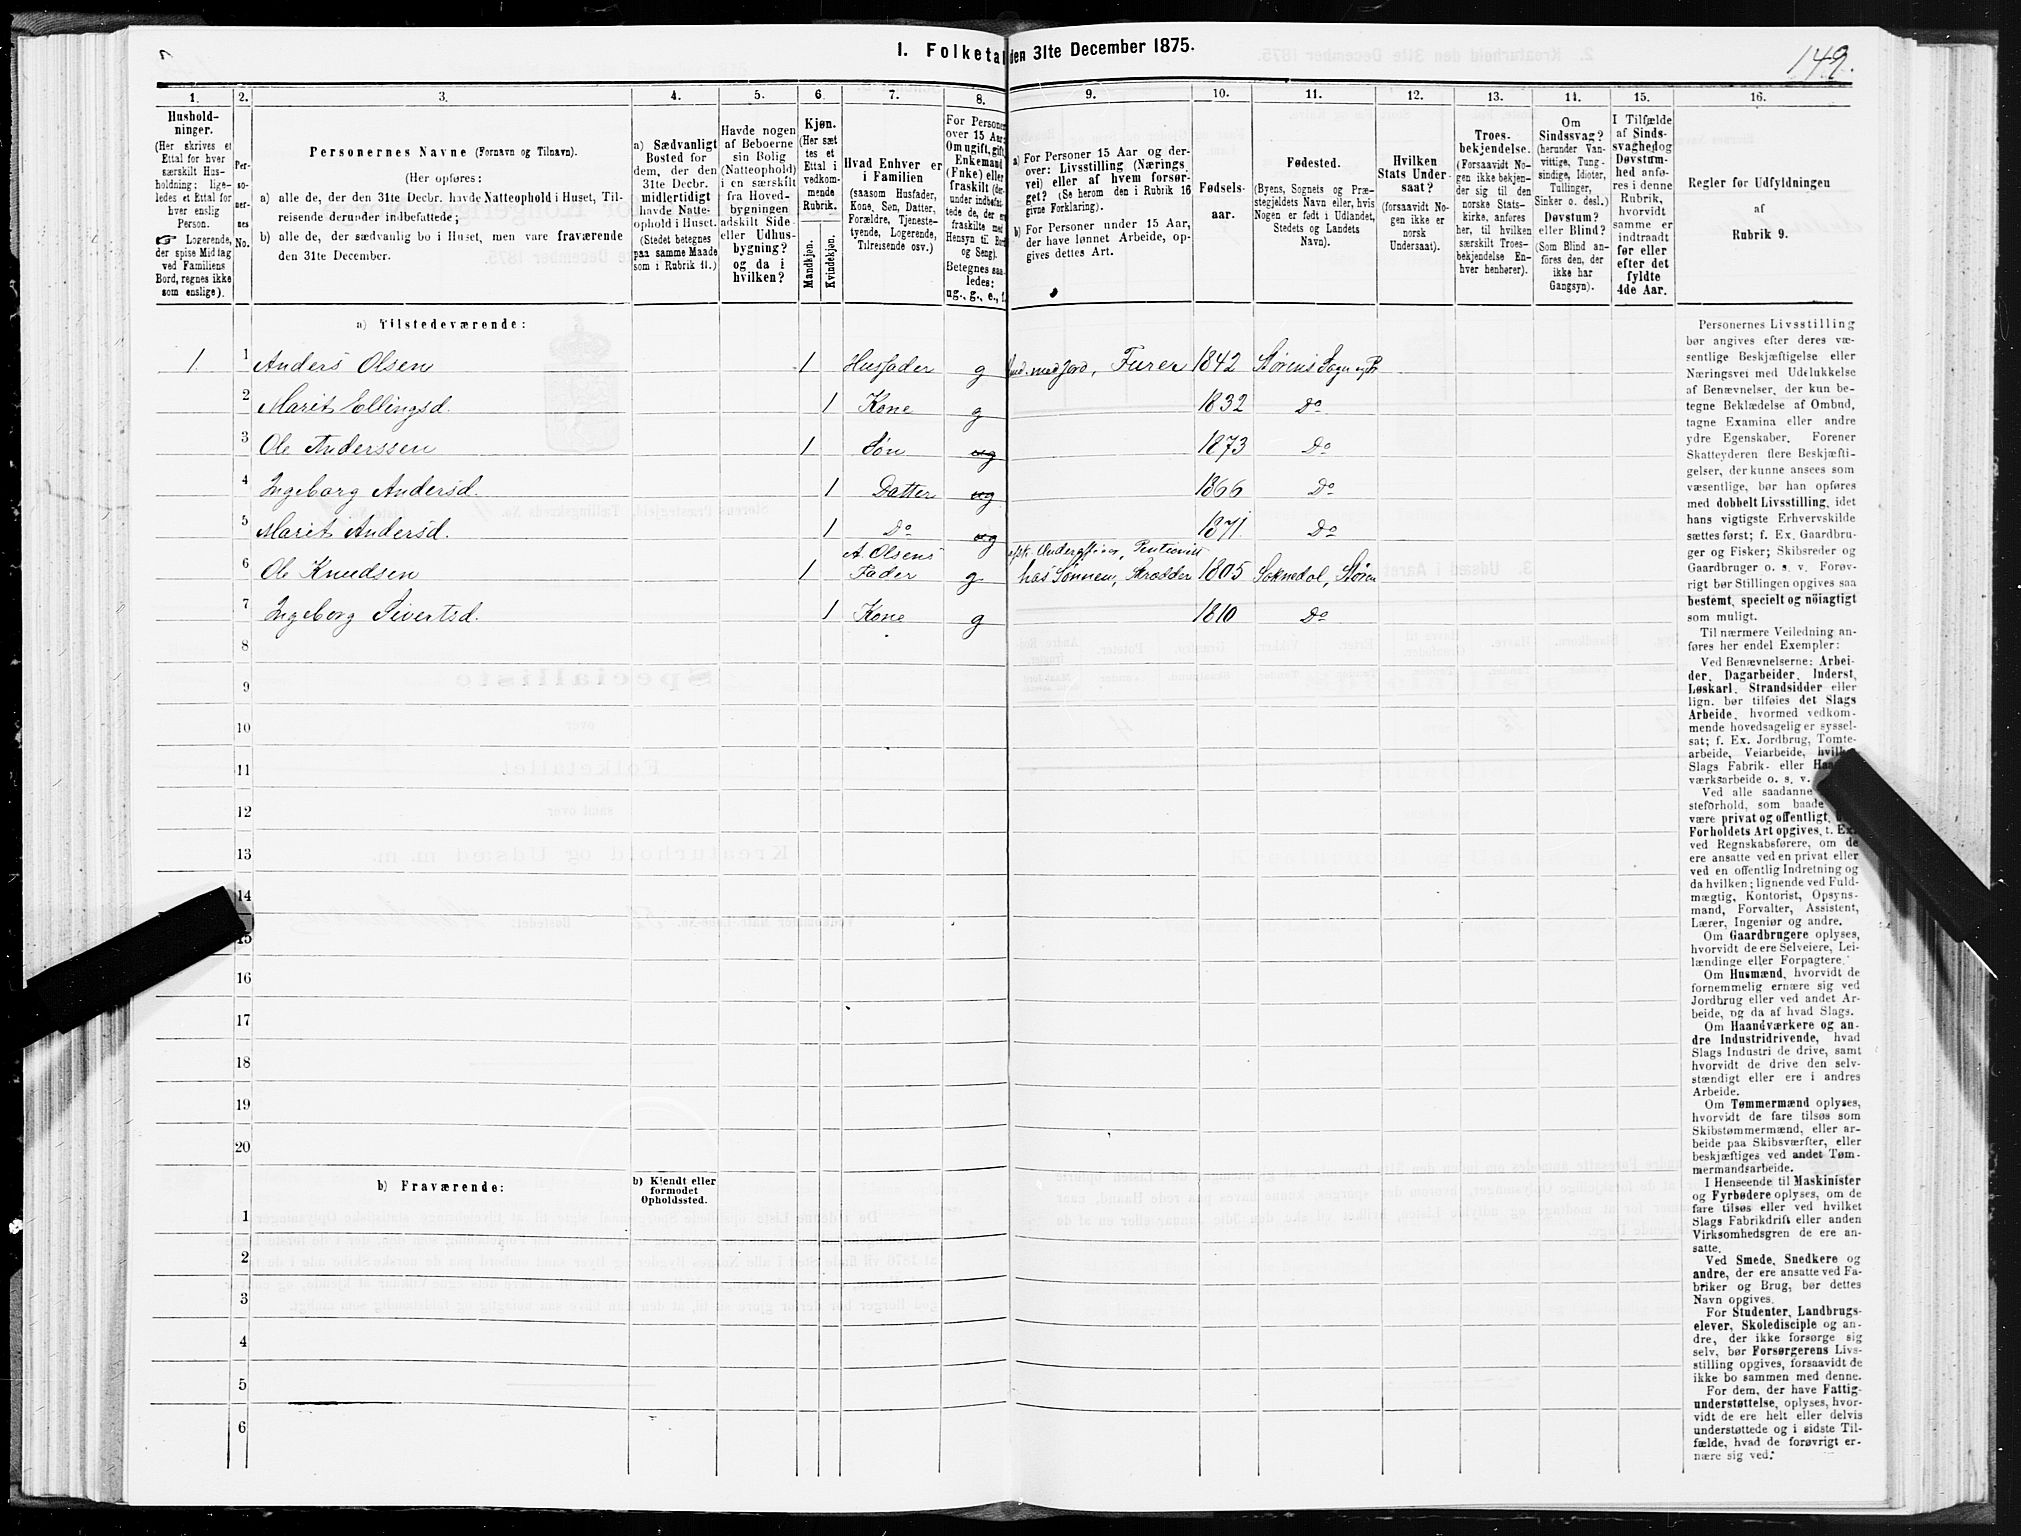 1. Folketal den 31te December 1875.
149.
1.
2.
3.
4.
5.
6.
7.
8.
9.
10.
11.
12.
13.
14.
15.
16.
Hushold-
ninger.
(Her skrives et
Ettal for hver
særskilt Hus-
holdning; lige-
ledes et Ettal for
hver enslig
Person.
☞ Logerende,
der spise Middag
ved Familiens
Bord, regnes ikke
som enslige).
Per-
so-
ner-
nes
No.
Personernes Navne (Fornavn og Tilnavn).
(Her opføres:
a) alle de, der den 31te Decbr. havde Natteophold i Huset, Til-
reisende derunder indbefattede;
b) alle de, der sædvanlig bo i Huset, men vare fraværende
den 31te December.
a) Sædvanligt
Bosted for
dem, der den
31te Decbr.
midlertidigt
havde Natte-
ophold i Huset.
(Stedet betegnes
paa samme Maade
som i Rubrik 11.)
Havde nogen
af Beboerne
sin Bolig
(Natteophold)
i en særskilt
fra Hoved-
bygningen
adskilt Side-
eller Udhus-
bygning?
og da i
hvilken?
Kjøn.
(Her sæt-
tes et
Ettal i
vedkom-
mende
Rubrik.
Mandkjøn.
Kvindekjøn.
Hvad Enhver er
i Familien
(saasom Husfader,
Kone, Søn, Datter,
Forældre, Tjeneste-
tyende, Logerende,
Tilreisende osv.)
For Personer
over 15 Aar:
Om ugift, gift,
Enkemand
(Enke) eller
fraskilt
og Seng).
Betegnes saa-
ledes:
ug., g., e., f.
a) For Personer 15 Aar og der-
over: Livsstilling (Nærings-
vei) eller af hvem forsør-
get? (Se herom den i Rubrik 16
givne Forklaring).
b) For Personer under 15 Aar,
der have lønnet Arbeide, op-
gives dettes Art.
Fødsels-
aar.
Fødested.
(Byens, Sognets og Præ-
stegjeldets Navn eller, hvis
Nogen er født i Udlandet,
Stedets og Landets
Navn).
Hvilken
Stats Under-
saat?
(forsaavidt No-
gen ikke er
norsk
Undersaat).
Troes-
bekjendelse.
(Forsaavidt No-
gen ikke bekjen-
der sig til den
norske Stats-
kirke, anføres
her, til hvilken
særskilt Troes-
bekjendelse En-
hver henhører).
Om
Sindssvag?
(herunder Van-
vittige, Tung-
sindige, Idioter,
Tullinger,
Sinker o. desl.)
Døvstum?
eller Blind?
(Som Blind an-
føres den, der
ikke har
Gangsyn).
I Tilfælde
af Sinds-
svaghed og
Døvstum-
hed anfø-
res i denne
Rubrik,
hvorvidt
samme er
indtraadt
før eller
efter det
fyldte
4de Aar.
Regler for Udfyldningen
af
Rubrik 9.
a) Tilstedeværende:
1 1 Anders Olsen 1 Husfader g med jord, Furer 1842 Størens Sogn og P
2 Marit Ellingsd. 1 Kone g 1832 Do
3 Ole Anderssen 1 Søn ug 1873 Do
4 Ingeborg Andersd. 1 Datter ug 1866 Do
5 Marit Andersd. 1 Do ug 1871 Do
A. Olsens
6 Ole Knudsen 1 Fader g hos Sønnen, Skrædder 1805 Soknedal, Støren
7 Ingeborg Sivertsd. 1 Kone g 1810 Do
8
9
10
11
12
13
14
15
16
17
18
19
20
b) Fraværende:
b) Kjendt eller
formodet
Opholdssted.
1
2
3
4
5
6
Personernes Livsstilling
bør angives efter deres væ-
sentlige Beskjæftigelse eller
Næringsvei med Udelukkelse
af Benævnelser, der kun be-
tegne Beklædelse af Ombud,
tagne Examina eller andre
ydre Egenskaber. Forener
Skatteyderen flere Beskjæfti-
gelser, der kunne ansees som
væsentlige, bør han opføres
med dobbelt Livsstilling, idet
hans vigtigste Erhvervskilde
sættes først; f. Ex. Gaardbru-
ger og Fisker; Skibsreder og
Gaardbruger o. s. v. Forøv-
rigt bør Stillingen opgives saa
bestemt, specielt og nöiagtigt
som muligt.
Til nærmere Veiledning an-
føres her endel Exempler:
Ved Benævnelserne: Arbei-
der, Dagarbeider, Inderst,
Løskarl, Strandsidder eller
lign. bør tilføies det Slags
Arbeide, hvormed vedkom-
mende hovedsagelig er syssel-
sat; f. Ex. Jordbrug, Tomte-
arbeide, Veiarbeide, hvilket
Slags Fabrik- eller Haand-
værksarbeide o. s. v.
Ved alle saadanne
steforhold, som baade
være privat og offentligt,
Forholdets Art opgives, t. Ex.
ved Regnskabsførere, om de
ere ansatte ved en privat eller
ved en offentlig Indretning og
da hvilken; lignende ved Fuld-
mægtig, Kontorist, Opsyns-
mand, Forvalter, Assistent,
Lærer, Ingeniør og andre.
Om Gaardbrugere oplyses,
hvorvidt de ere Selveiere, Lei-
lændinge eller Forpagtere.
Om Husmænd, hvorvidt de
fornemmelig ernære sig ved
Jordbrug eller ved andet Ar-
beide, og da af hvad Slags.
Om Haandværkere og an-
dre Industridrivende, hvad
Slags Industri de drive, samt
hvorvidt de drive den selv-
stændigt eller ere i andres
Arbeide.
Om Tømmermænd oplyses,
hvorvidt de fare tilsøs som
Skibstømmermænd, eller ar-
beide paa Skibsværfter, eller
beskjæftiges ved andet Tøm-
mermandsarbeide.
I Henseende til Maskinister
og Fyrbødere oplyses, om de
fare tilsøs eller ved hvilket
Slags Fabrikdrift eller anden
Virksomhedsgren de ere an-
satte.
Ved Smede, Snedkere og
andre, der ere ansatte ved Fa-
briker og Brug, bør dettes
Navn opgives.
For Studenter, Landbrugs-
elever, Skoledisciple og an-
dre, der ikke forsørge sig
selv, bør Forsørgerens Livs-
stilling opgives, forsaavidt de
ikke bo sammen med denne.
For dem, der have Fattig-
understøttelse, oplyses, hvor-
vidt de ere helt eller delvis
understøttede og i sidste Til-
fælde, hvad de forøvrigt er-
nære sig ved.